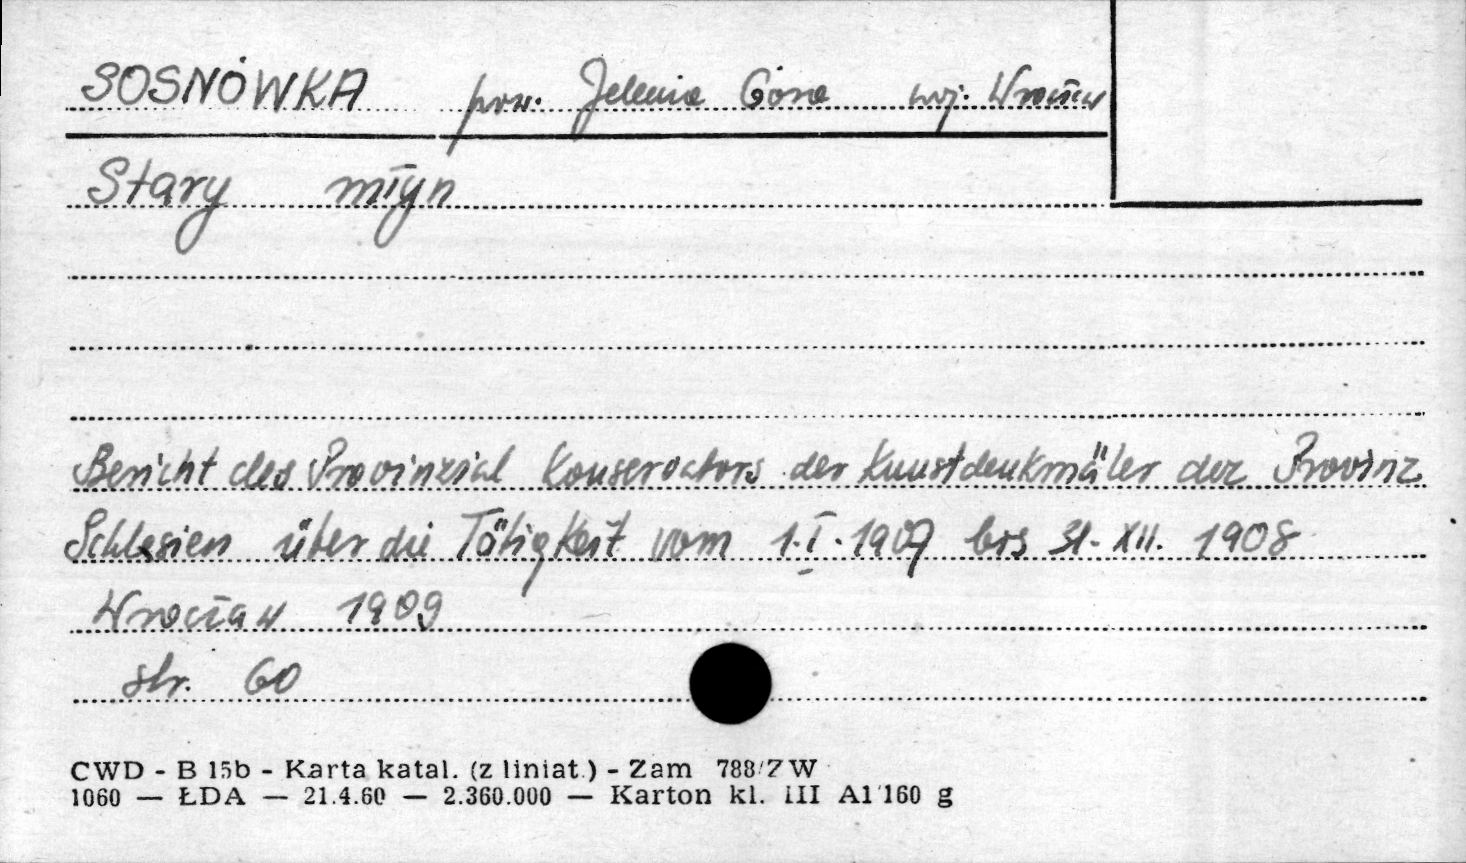 SOSNÓWKA pow. Jelenia Góra woj. Wrocław
Stary młyn
Bericht des Provinzial Konservators der Kunstdenkmäler der Provinz
Schlesien über die Tätigkeit vom 1.I.1907 bis 31.XII.1908
Wrocław 1909
str. 60
CWD - B 15b - Karta katal. (z liniat.) - Zam 788/ZW
1060 — ŁDA — 21.4.60 — 2.360.000 — Karton kl. III A1 160 g